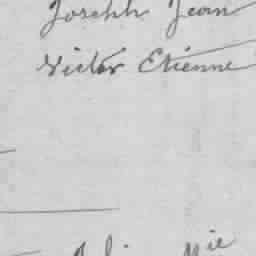 Joseph Jean
Victor Etienne